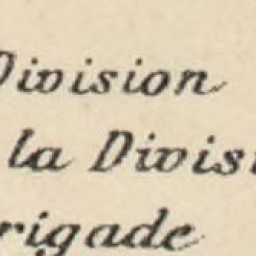 Division
la Divisi
rigade